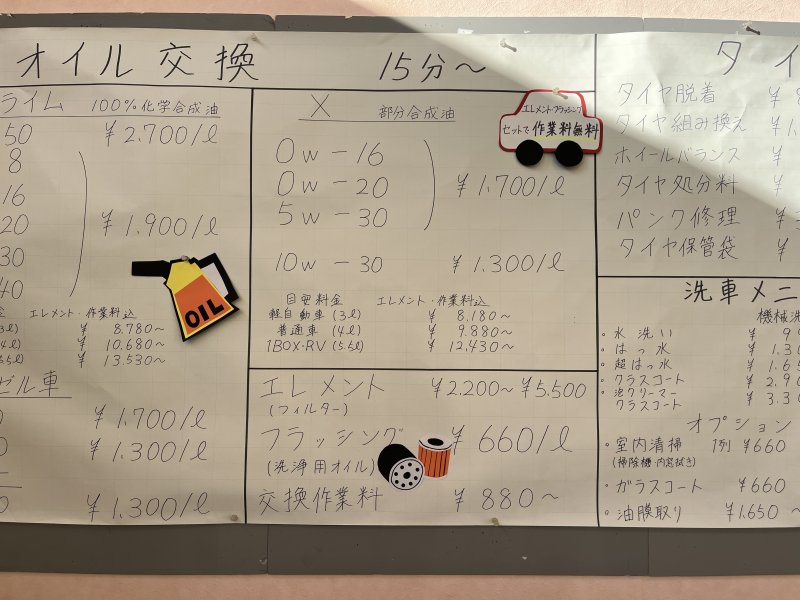 オイル交換 15分～
ライム 100%化学合成油
50 ¥2.700/ℓ
8
16
20 ¥1.900/ℓ
30
40
OIL
エレメント・作業料込
¥ 8.780～
¥ 10.680～
¥ 13.530～
ゼル車
¥1.700/ℓ
¥1.300/ℓ
¥1.300/ℓ
X 部分合成油
エレメント・フラッシング
セットで作業料無料
0w－16
0w－20 ¥1.700/ℓ
5w－30
10w－30 ¥1.300/ℓ
目安料金 エレメント・作業料込
軽自動車(3ℓ) ¥ 8.180～
普通車(4ℓ) ¥ 9.880～
1BOX・RV(5.5ℓ) ¥ 12,430～
エレメント ¥2.200～¥5.500
(フィルター)
フラッシング ¥660/ℓ
(洗浄用オイル)
交換作業料 ¥880～
タイ
タイヤ脱着 ¥
タイヤ組み換え ¥1.
ホイールバランス ¥
タイヤ処分料 ¥
パンク修理 ¥
タイヤ保管袋 ¥
洗車メニ
機械洗
・水洗い ¥ 9
・はっ水 ¥ 1.3
・超はっ水 ¥ 1.6
・グラスコート ¥ 2.9
・泡クリーマー
グラスコート ¥ 3.3
オプション
・室内清掃 1列 ¥660
(掃除機・内窓拭き)
・ガラスコート ¥660
・油膜取り ¥1.650～